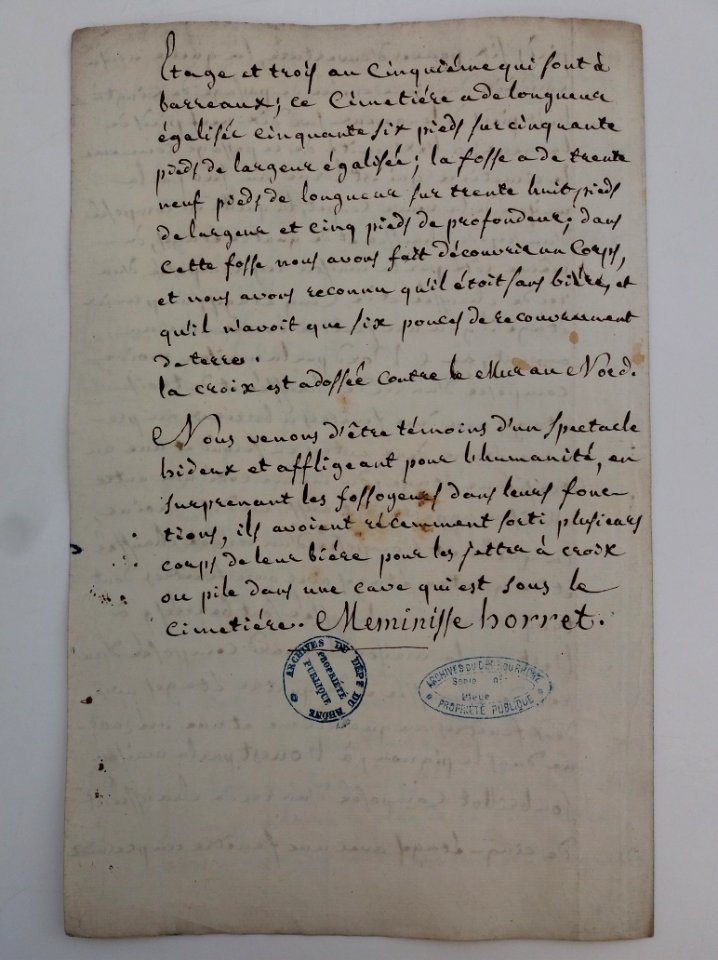 Etage et trois au Cinquiéme qui sont à
barreaux; ce Cimetiére a de longueur
égalisée cinquante six pieds sur cinquante
pieds de largeur égalisée; la fosse a de trente
neuf pieds de longueur sur trente huit pieds
de largeur et cinq pieds de profondeur; dans
cette fosse nous avons fait découvrir un Corps,
et nous avons reconnu qu'il étoit sans biére, et
qu'il n'avoit que six pouces de recouvrement
de terre.
la croix est adossée contre le Mur au Nord.
Nous venons d'être témoins d'un spectacle
hideux et affligeant pour l'humanité, en
surprenant les fossoyeurs dans leurs fonc-
tions, ils avoient récemment sorti plusieurs
corps de leur biére pour les jetter à croix
ou pile dans une cave qui est sous le
Cimetiére. Meminisse horret.
ARCHIVES DU DÉPT DU RHÔNE
PROPRIÉTÉ
PUBLIQUE
ARCHIVES DU DÉPT DU RHÔNE
Série n°
PROPRIÉTÉ PUBLIQUE